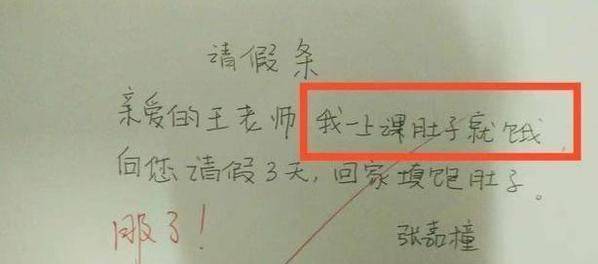 请假条
亲爱的王老师 我一上课肚子就饿，
向您请假3天，回家填饱肚子。
服了！
张嘉橦